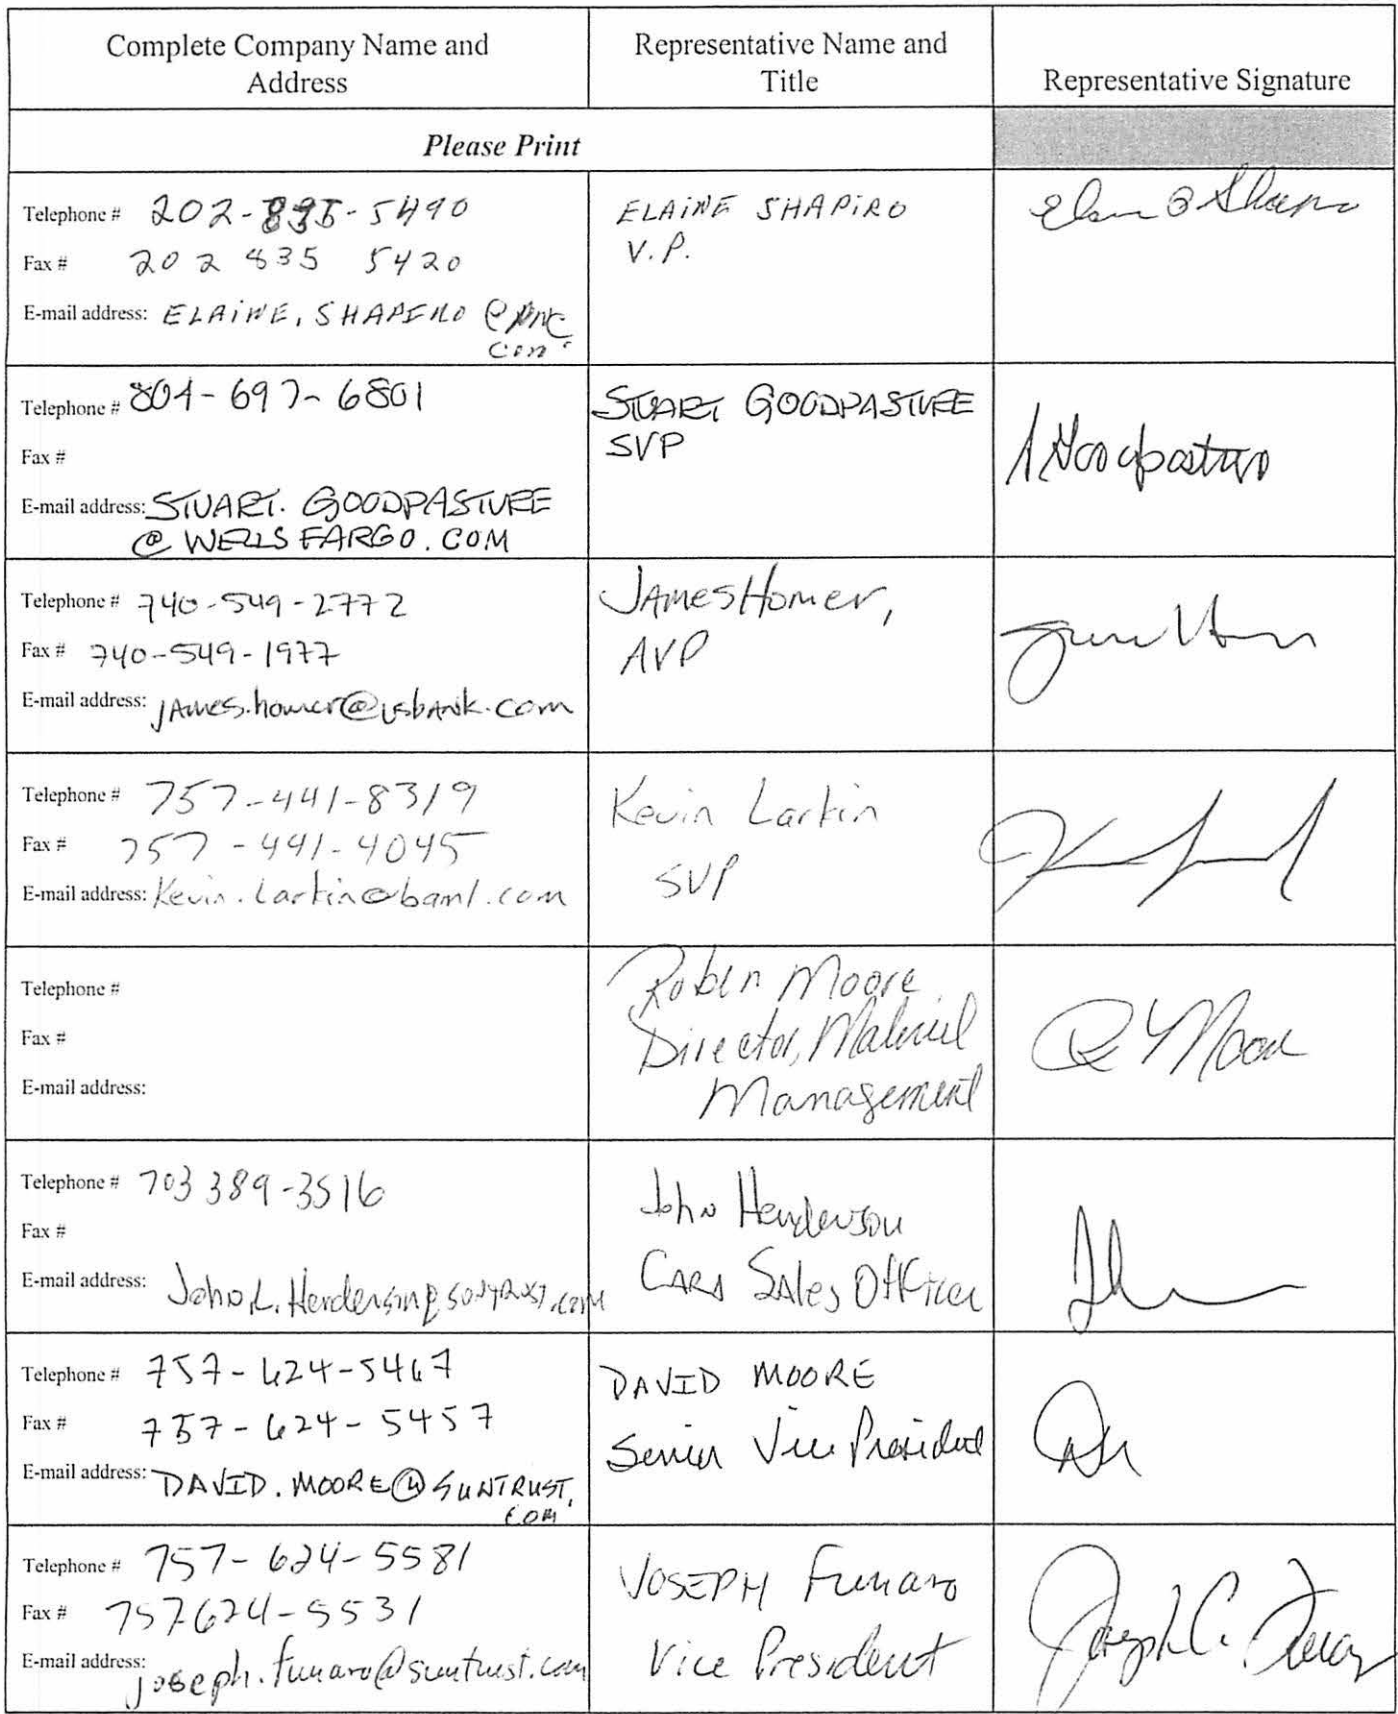 Complete Company Name and
Address
Representative Name and
Title
Representative Signature
Please Print
Telephone # 202-835-5490
Fax # 202 835 5420
E-mail address: ELAINE.SHAPIRO @PNC
com
ELAINE SHAPIRO
V.P.
Telephone # 804-697-6801
Fax #
E-mail address: STUART.GOODPASTURE
@WELLSFARGO.COM
STUART GOODPASTURE
SVP
Telephone # 740-549-2772
Fax # 740-549-1977
E-mail address: james.homer@usbank.com
James Homer,
AVP
Telephone # 757-441-8319
Fax # 757-441-4045
E-mail address: Kevin.Larkin@baml.com
Kevin Larkin
SVP
Telephone #
Fax #
E-mail address:
Robin Moore
Director, Materiel
Management
Telephone # 703 389-3516
Fax #
E-mail address: John.L.Henderson@suntrust.com
John Henderson
Card Sales Officer
Telephone # 757-624-5467
Fax # 757-624-5457
E-mail address: DAVID.MOORE@SUNTRUST.
COM
DAVID MOORE
Senior Vice President
Telephone # 757-624-5581
Fax # 757624-5531
E-mail address: joseph.funaro@suntrust.com
JOSEPH Funaro
Vice President
Joseph C. Funaro